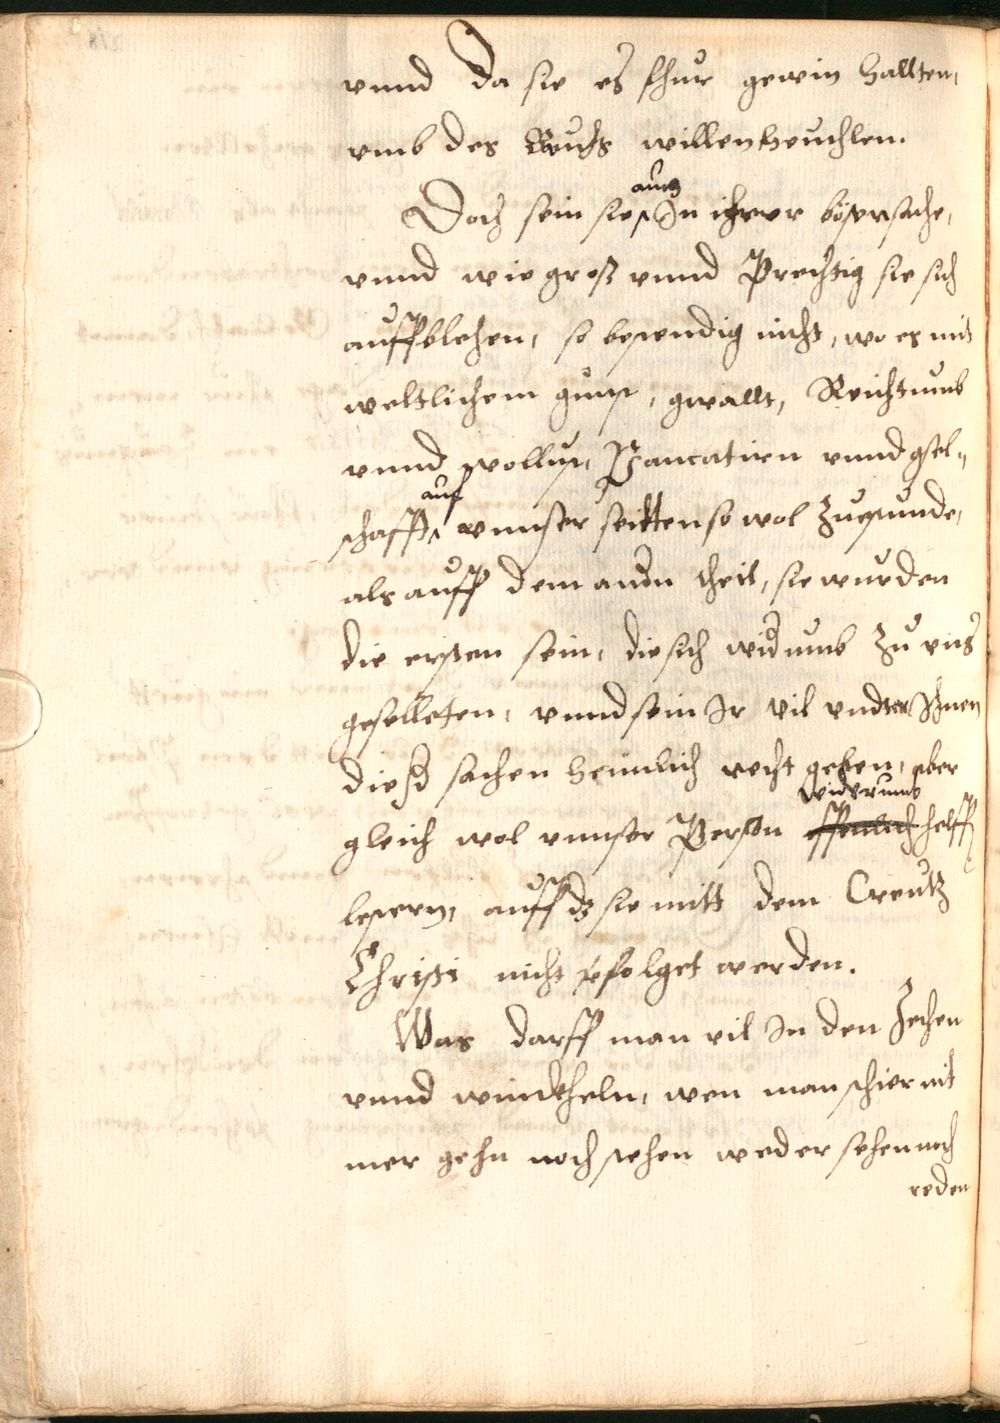 vnnd da sie es fhur gewin hallten,
vmb des Bauchs willen heuchlen.
Doch sein sie auch In ihrer bösen sache,
vnnd wie groß vnnd Prechtig sie sich
auffblehen, so bestendig nicht, wo es mit
weltlichem gunst, gwallt, Reichtumb
vnnd wollust, Vancatien vnnd gsel-
schafft, auf vnnser seitten so wol zustunde,
als auff dem andn theil, sie wurden
die ersten sein, die sich widumb zu vns
geselleten, vnnd sein Ir vil vndter Ihnen
die sachen heimlich recht geben, aber
gleich wol vnnser Person widerumb helffen
lestern, auff dz sie mitt dem Creutz
Christi nicht vfolget werden.
Was darff man vil In den Zechen
vnnd winckheln, wen man schier nit
mer gehn noch stehen weder sehen noch
reden